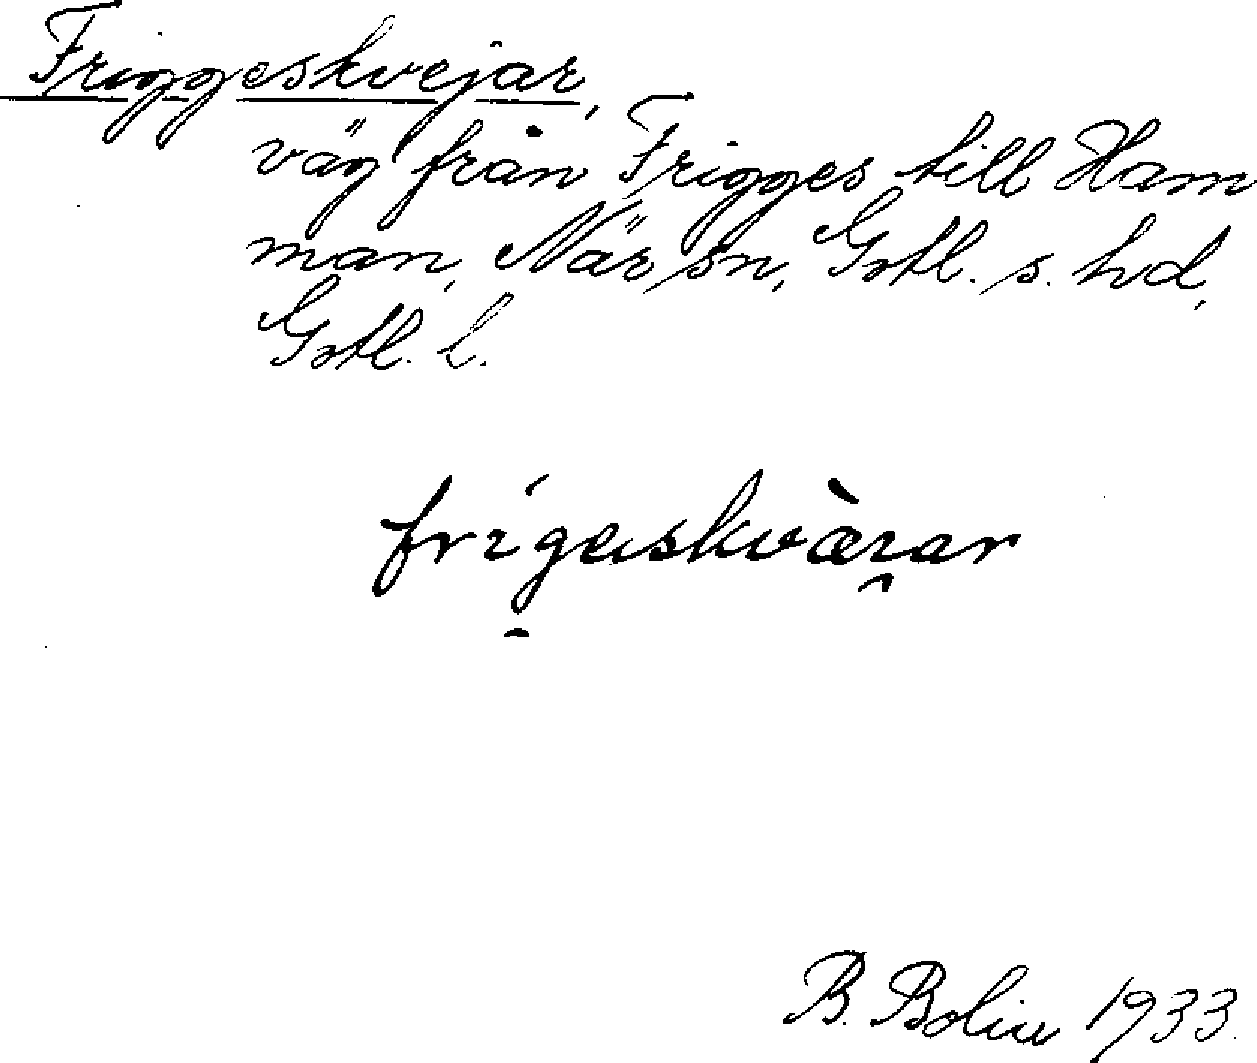 Friggeskvejar,
väg från Frigges till Ham
man, När sn, Gotl. s. hd,
Gotl. l.
frigaskværar
B. Bolin 1933.